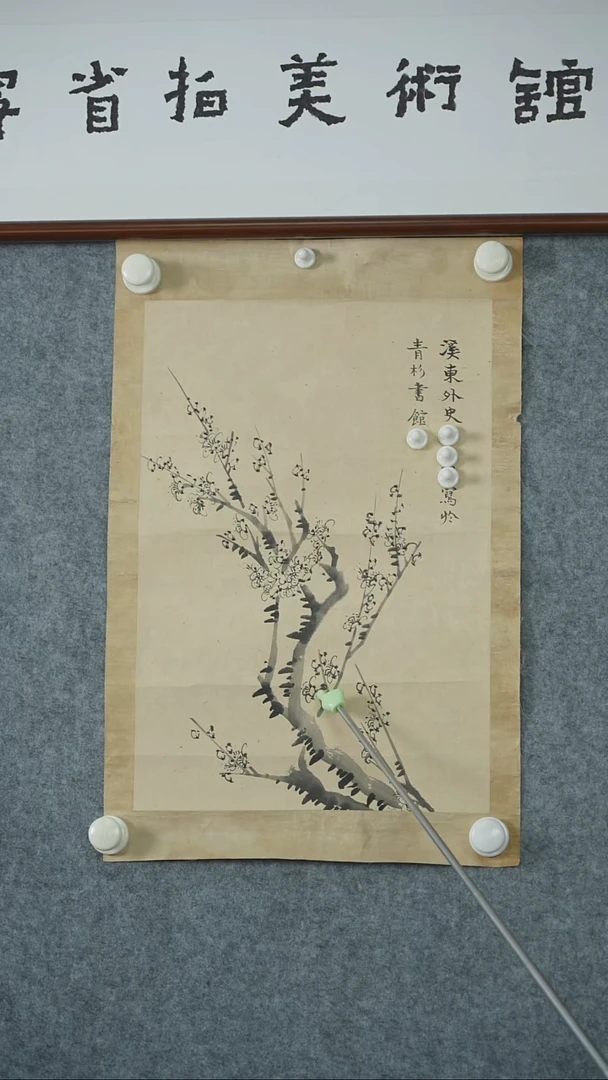 省拍美術館
溪東外史 寫於
青杉書館